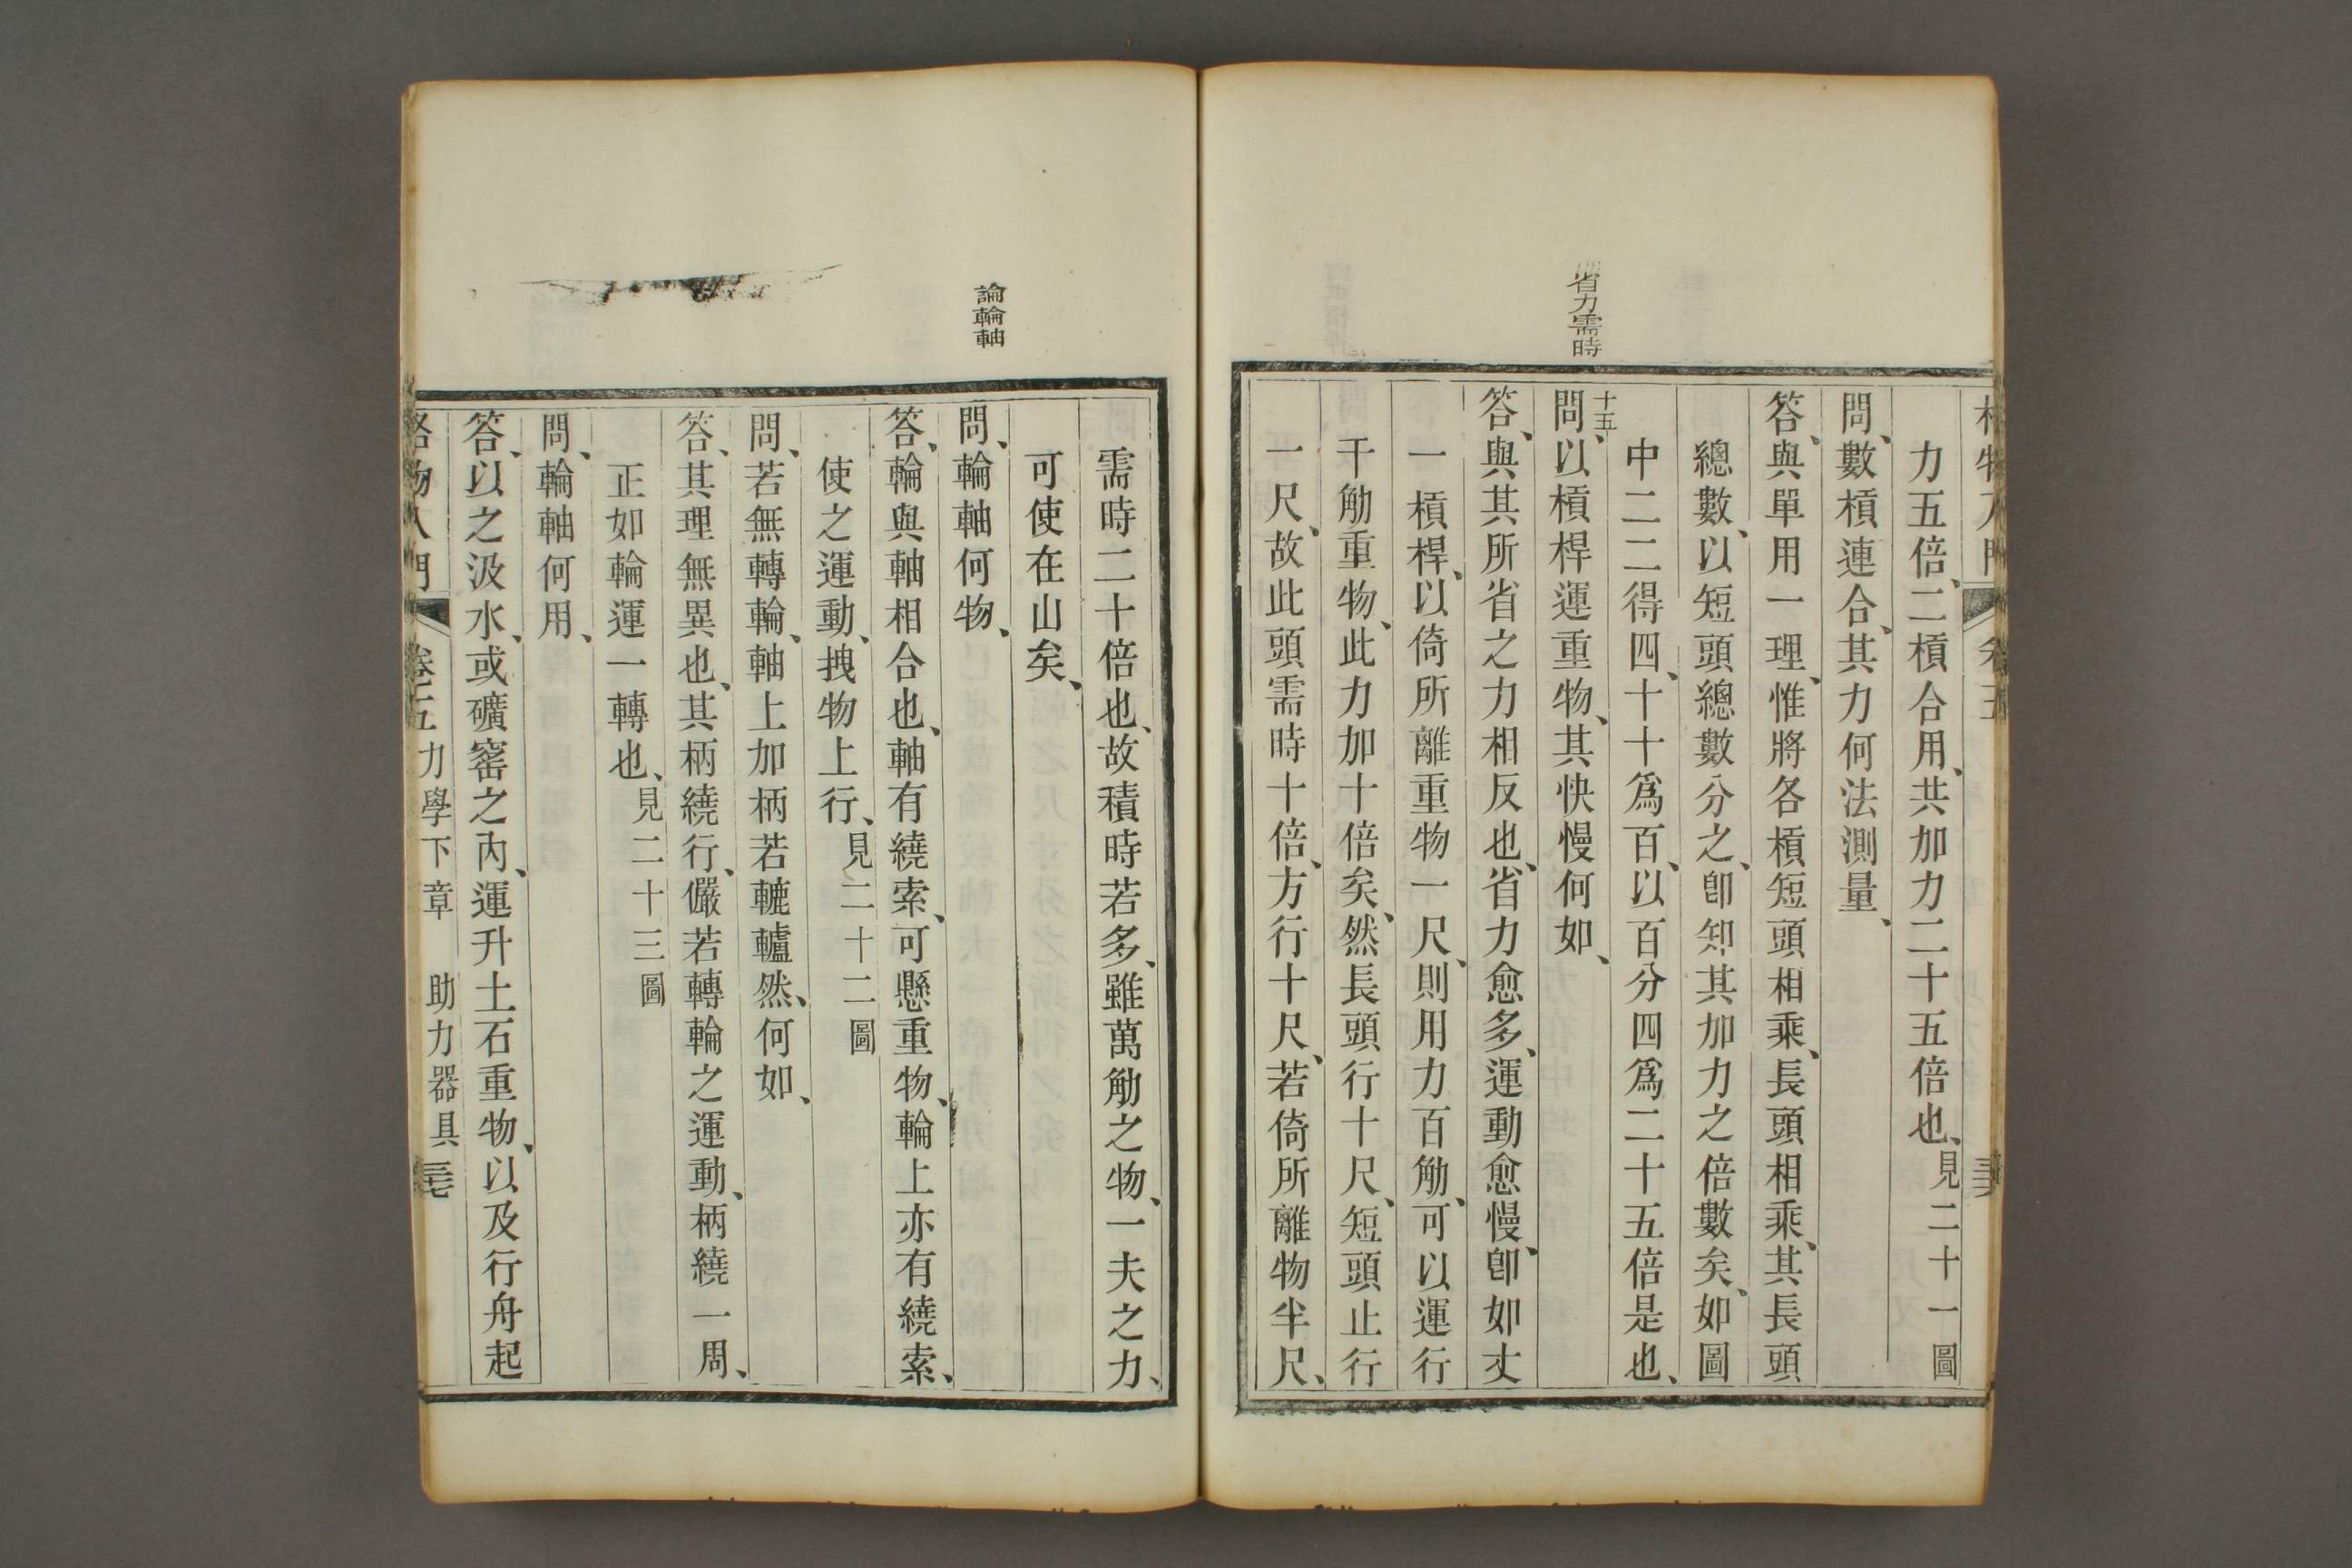 格物入門 卷五
力五倍、二槓合用、共加力二十五倍也、見二十一圖
問、數槓連合、其力何法測量、
答、與單用一理、惟將各槓短頭相乘、長頭相乘、其長頭
總數、以短頭總數分之、卽知其加力之倍數矣、如圖
中二二得四、十十爲百、以百分四爲二十五倍是也、
省力需時
十五
問、以槓桿運重物、其快慢何如、
答、與其所省之力相反也、省力愈多、運動愈慢、卽如丈
一槓桿、以倚所離重物一尺、則用力百觔、可以運行
千觔重物、此力加十倍矣、然長頭行十尺、短頭止行
一尺、故此頭需時十倍、方行十尺、若倚所離物半尺、
需時二十倍也、故積時若多、雖萬觔之物、一夫之力、
可使在山矣、
論輪軸
問、輪軸何物、
答、輪與軸相合也、軸有繞索、可懸重物、輪上亦有繞索、
使之運動、拽物上行、見二十二圖
問、若無轉輪、軸上加柄若轆轤然、何如、
答、其理無異也、其柄繞行、儼若轉輪之運動、柄繞一周、
正如輪運一轉也、見二十三圖
問、輪軸何用、
答、以之汲水、或礦窰之內、運升土石重物、以及行舟起
格物入門 卷五 力學下章 助力器具 三七